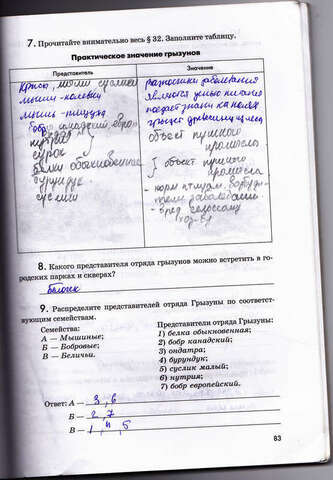 7. Прочитайте внимательно весь § 32. Заполните таблицу.
Практическое значение грызунов
Представитель
Значение
крысы, мыши, суслики
разносчики заболевания
мыши - полевки
являются целью питания
мышь -
поедает злаки на полях
бобр канадский, евро-
грызет древесину
объект пушного
сурок
промысла
белки обыкновенные
объект пушного
бурундук
промысла
суслики
- корм птицам,
заболеваний
- вред
8. Какого представителя отряда грызунов можно встретить в го-
родских парках и скверах?
белочек
9. Распределите представителей отряда Грызуны по соответст-
вующим семействам.
Семейства:
А — Мышиные;
Б — Бобровые;
В — Беличьи.
Представители отряда Грызуны:
1) белка обыкновенная;
2) бобр канадский;
3) ондатра;
4) бурундук;
5) суслик малый;
6) нутрия;
7) бобр европейский.
Ответ: А — 3, 6
Б — 2, 7
В — 1, 4, 5
83